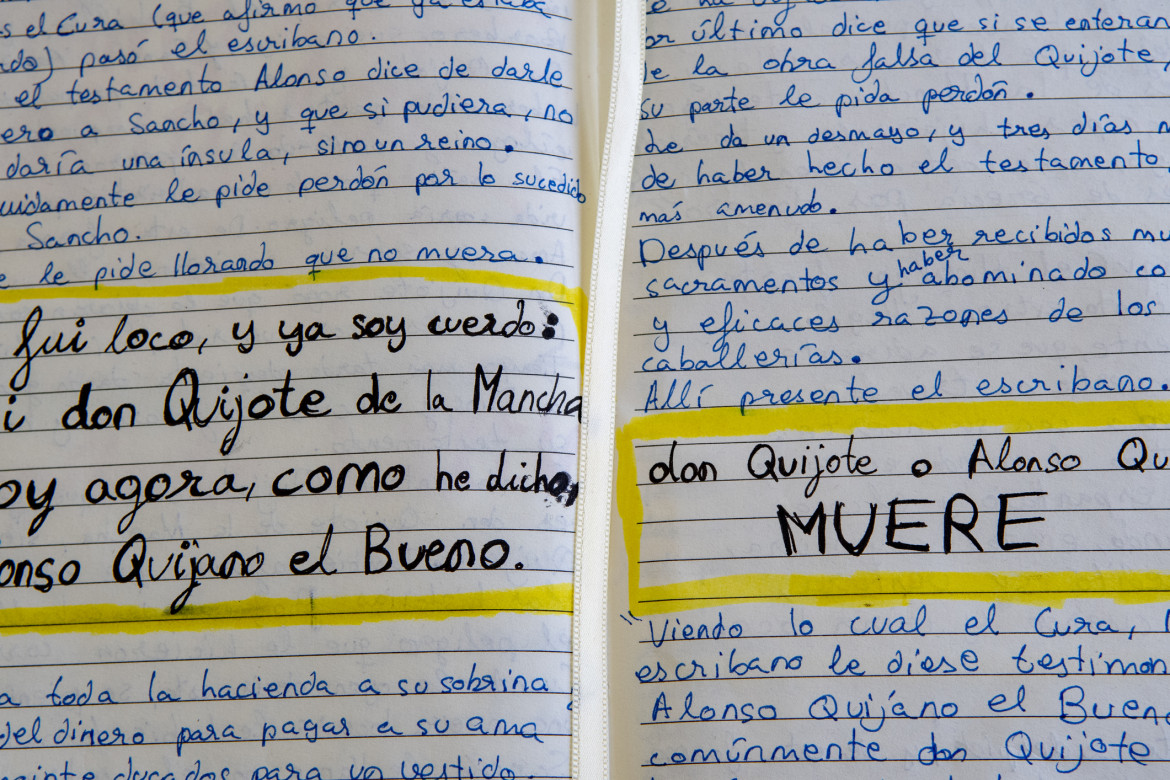 s el Cura (que afirmo que ya estaba
ado) pasó el escribano.
el testamento Alonso dice de darle
ero a Sancho, y que si pudiera, no
daría una ínsula, sino un reino.
uidamente le pide perdón por lo sucedido
Sancho.
e le pide llorando que no muera.
fui loco, y ya soy cuerdo:
i don Quijote de la Mancha
oy agora, como he dicho,
onso Quijano el Bueno.
a toda la hacienda a su sobrina
del dinero para pagar a su ama
veinte ducados para un vestido.
or último dice que si se enteran
de la obra falsa del Quijote,
su parte le pida perdón.
he da un desmayo, y tres días
de haber hecho el testamento
mas amenudo.
Después de haber recibidos mu
sacramentos y haber abominado co
y eficaces razones de los
caballerías.
Allí presente el escribano.
don Quijote o Alonso Qu
MUERE
"Viendo lo cual el Cura,
escribano le diese testimon
Alonso Quijano el Buen
comúnmente don Quijote